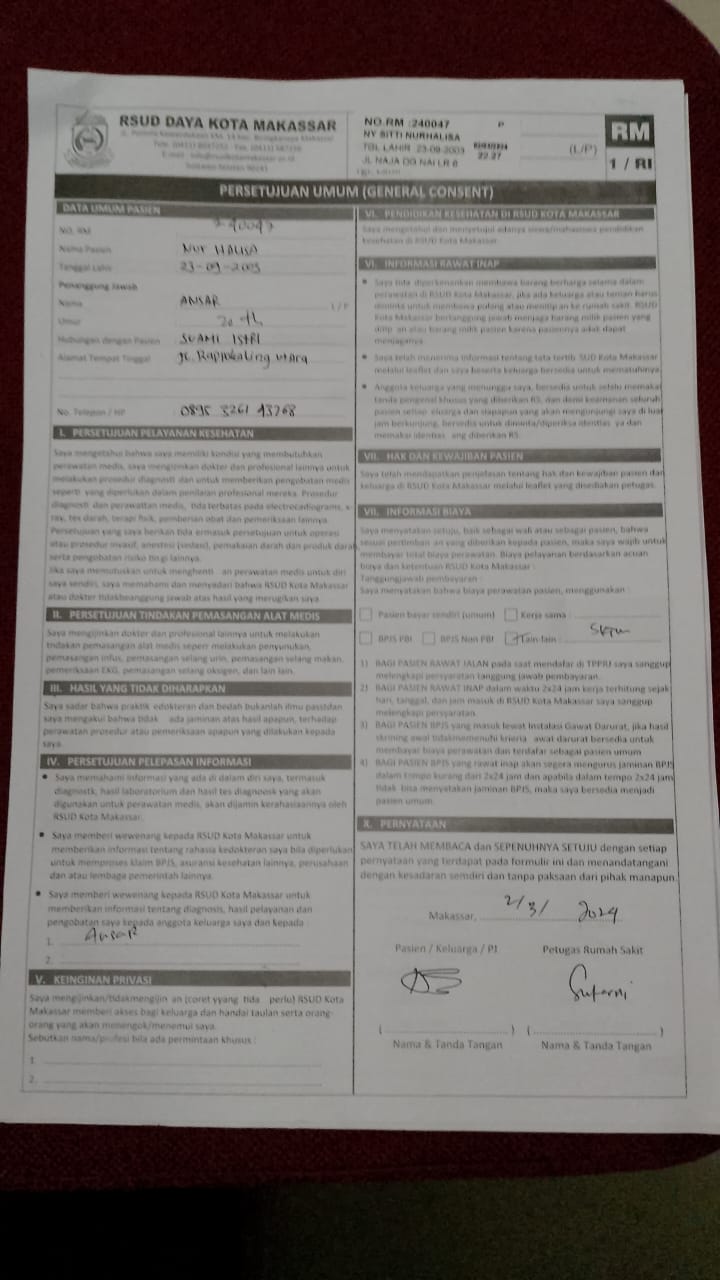 RSUD DAYA KOTA MAKASSAR
NO.RM :240047 P
NY SITTI NURHALISA
TGL LAHIR 23-09-2003
22.27
(L/P)
RM
1 / RI
PERSETUJUAN UMUM (GENERAL CONSENT)
DATA UMUM PASIEN
NO. RM
Nama Pasien NUR HALISA
Tanggal Lahir 23-09-2003
Penanggung Jawab
Nama ANSAR L/P
Umur 20 th
Hubungan dengan Pasien SUAMI ISTRI
Alamat Tempat Tinggal
No. Telepon / HP 0895 3261 43768
I. PERSETUJUAN PELAYANAN KESEHATAN
Saya mengetahui bahwa saya memiliki kondisi yang membutuhkan
perawatan medis, saya mengizinkan dokter dan profesional lainnya untuk
melakukan prosedur diagnosti dan untuk memberikan pengobatan medis
seperti yang diperlukan dalam penilaian profesional mereka. Prosedur
diagnosti dan perawattan medis, tida terbatas pada electrocadiograms, x-
ray, tes darah, terapi fisik, pemberian obat dan pemeriksaan lainnya.
Persetujuan yang saya berikan tida termasuk persetujuan untuk operasi
atau prosedur invasif, anestesi (sedasi), pemakaian darah dan produk darah
serta pengobatan risiko tinggi lainnya.
Jika saya memutuskan untuk menghenti an perawatan medis untuk diri
saya sendiri, saya memahami dan menyadari bahwa RSUD Kota Makassar
atau dokter tidakbeanggung jawab atas hasil yang merugikan saya.
II. PERSETUJUAN TINDAKAN PEMASANGAN ALAT MEDIS
Saya mengijinkan dokter dan profesional lainnya untuk melakukan
tndakan pemasangan alat medis seperr melakukan penyunukan,
pemasangan infus, pemasangan selang urin, pemasangan selang makan,
pemeriksaan EKG, pemasangan selang oksigen, dan lain lain.
III. HASIL YANG TIDAK DIHARAPKAN
Saya sadar bahwa praktik edokteran dan bedah bukanlah ilmu passtdan
saya mengakui bahwa tidak ada jaminan atas hasil apapun, terhadap
perawatan prosedur atau pemeriksaan apapun yang dilakukan kepada
saya.
IV. PERSETUJUAN PELEPASAN INFORMASI
Saya memahami informasi yang ada di dalam diri saya, termasuk
diagnostk, hasil laboratorium dan hasil tes diagnoosk yang akan
digunakan untuk perawatan medis, akan dijamin kerahasiaannya oleh
RSUD Kota Makassar.
Saya memberi wewenang kepada RSUD Kota Makassar untuk
memberikan informasi tentang rahasia kedokteran saya bila diperlukan
untuk memproses klaim BPJS, asuransi kesehatan lainnya, perusahaan
dan atau lembaga pemerintah lainnya.
Saya memberi wewenang kepada RSUD Kota Makassar untuk
memberikan informasi tentang diagnosis, hasil pelayanan dan
pengobatan saya kepada anggota keluarga saya dan kepada :
1. Ansar
2.
V. KEINGINAN PRIVASI
Saya mengijinkan/tidakmengijin an (coret yyang tida perlu) RSUD Kota
Makassar memberi akses bagi keluarga dan handai taulan serta orang-
orang yang akan menengok/menemui saya.
Sebutkan nama/profesi bila ada permintaan khusus :
1.
2.
VI. PENDIDIKAN KESEHATAN DI RSUD KOTA MAKASSAR
Saya mengetahui dan menyetujui adanya siswa/mahasiswa pendidikan
kesehatan di RSUD Kota Makassar.
VI. INFORMASI RAWAT INAP
Saya tida diperkenankan membawa barang berharga selama dalam
perawatan di RSUD Kota Makassar, jika ada keluarga atau teman harus
diminta untuk membawa pulang atau menitip an ke rumah sakit. RSUD
Kota Makassar bertanggung jawab menjaga barang milik pasien yang
ditip an atau barang milik pasien karena pasiennya adak dapat
menjaganya.
Saya telah menerima informasi tentang tata tertib SUD Kota Makassar
melalui leaflet dan saya beserta keluarga bersedia untuk mematuhinya.
Anggota keluarga yang menunggu saya, bersedia untuk selalu memakai
tanda pengenal khusus yang diberikan RS, dan demi keamanan seluruh
pasien setiap eluarga dan siapapun yang akan mengunjungi saya di luar
jam berkunjung, bersedia untuk diminta/diperiksa identias ya dan
memakai identias ang diberikan RS.
VII. HAK DAN KEWAJIBAN PASIEN
Saya telah mendapatkan penjelasan tentang hak dan kewajiban pasien dan
keluarga di RSUD Kota Makassar melalui leaflet yang disediakan petugas.
VII. INFORMASI BIAYA
Saya menyatakan setuju, baik sebagai wali atau sebagai pasien, bahwa
sesuai pertimban an yang diberikan kepada pasien, maka saya wajib untuk
membayar total biaya perawatan. Biaya pelayanan berdasarkan acuan
biaya dan ketentuan RSUD Kota Makassar :
Tanggungjawab pembayaran :
Saya menyatakan bahwa biaya perawatan pasien, menggunakan :
Pasien bayar sendiri (umum) Kerja sama
BPJS PBI BPJS Non PBI Lain-lain :
1) BAGI PASIEN RAWAT JALAN pada saat mendaftar di TPPRJ saya sanggup
melengkapi persyaratan tanggung jawab pembayaran.
2) BAGI PASIEN RAWAT INAP dalam waktu 2x24 jam kerja terhitung sejak
hari, tanggal, dan jam masuk di RSUD Kota Makassar saya sanggup
melengkapi persyaratan.
3) BAGI PASIEN BPJS yang masuk lewat Instalasi Gawat Darurat, jika hasil
skrining awal tidakmemenuhi krieria awat darurat bersedia untuk
membayar biaya perawatan dan terdaftar sebagai pasien umum
4) BAGI PASIEN BPJS yang rawat inap akan segera mengurus jaminan BPJS
dalam tempo kurang dari 2x24 jam dan apabila dalam tempo 2x24 jam
tidak bisa menyatakan jaminan BPJS, maka saya bersedia menjadi
pasien umum.
X. PERNYATAAN
SAYA TELAH MEMBACA dan SEPENUHNYA SETUJU dengan setiap
pernyataan yang terdapat pada formulir ini dan menandatangani
dengan kesadaran semdiri dan tanpa paksaan dari pihak manapun.
Makassar, 2/3/ 2024
Pasien / Keluarga / PJ Petugas Rumah Sakit
Suparni
(....................) (....................)
Nama & Tanda Tangan Nama & Tanda Tangan